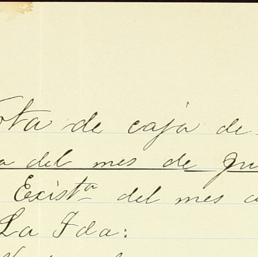 Nota de caja de
del mes de
Existª del mes
La Ida: